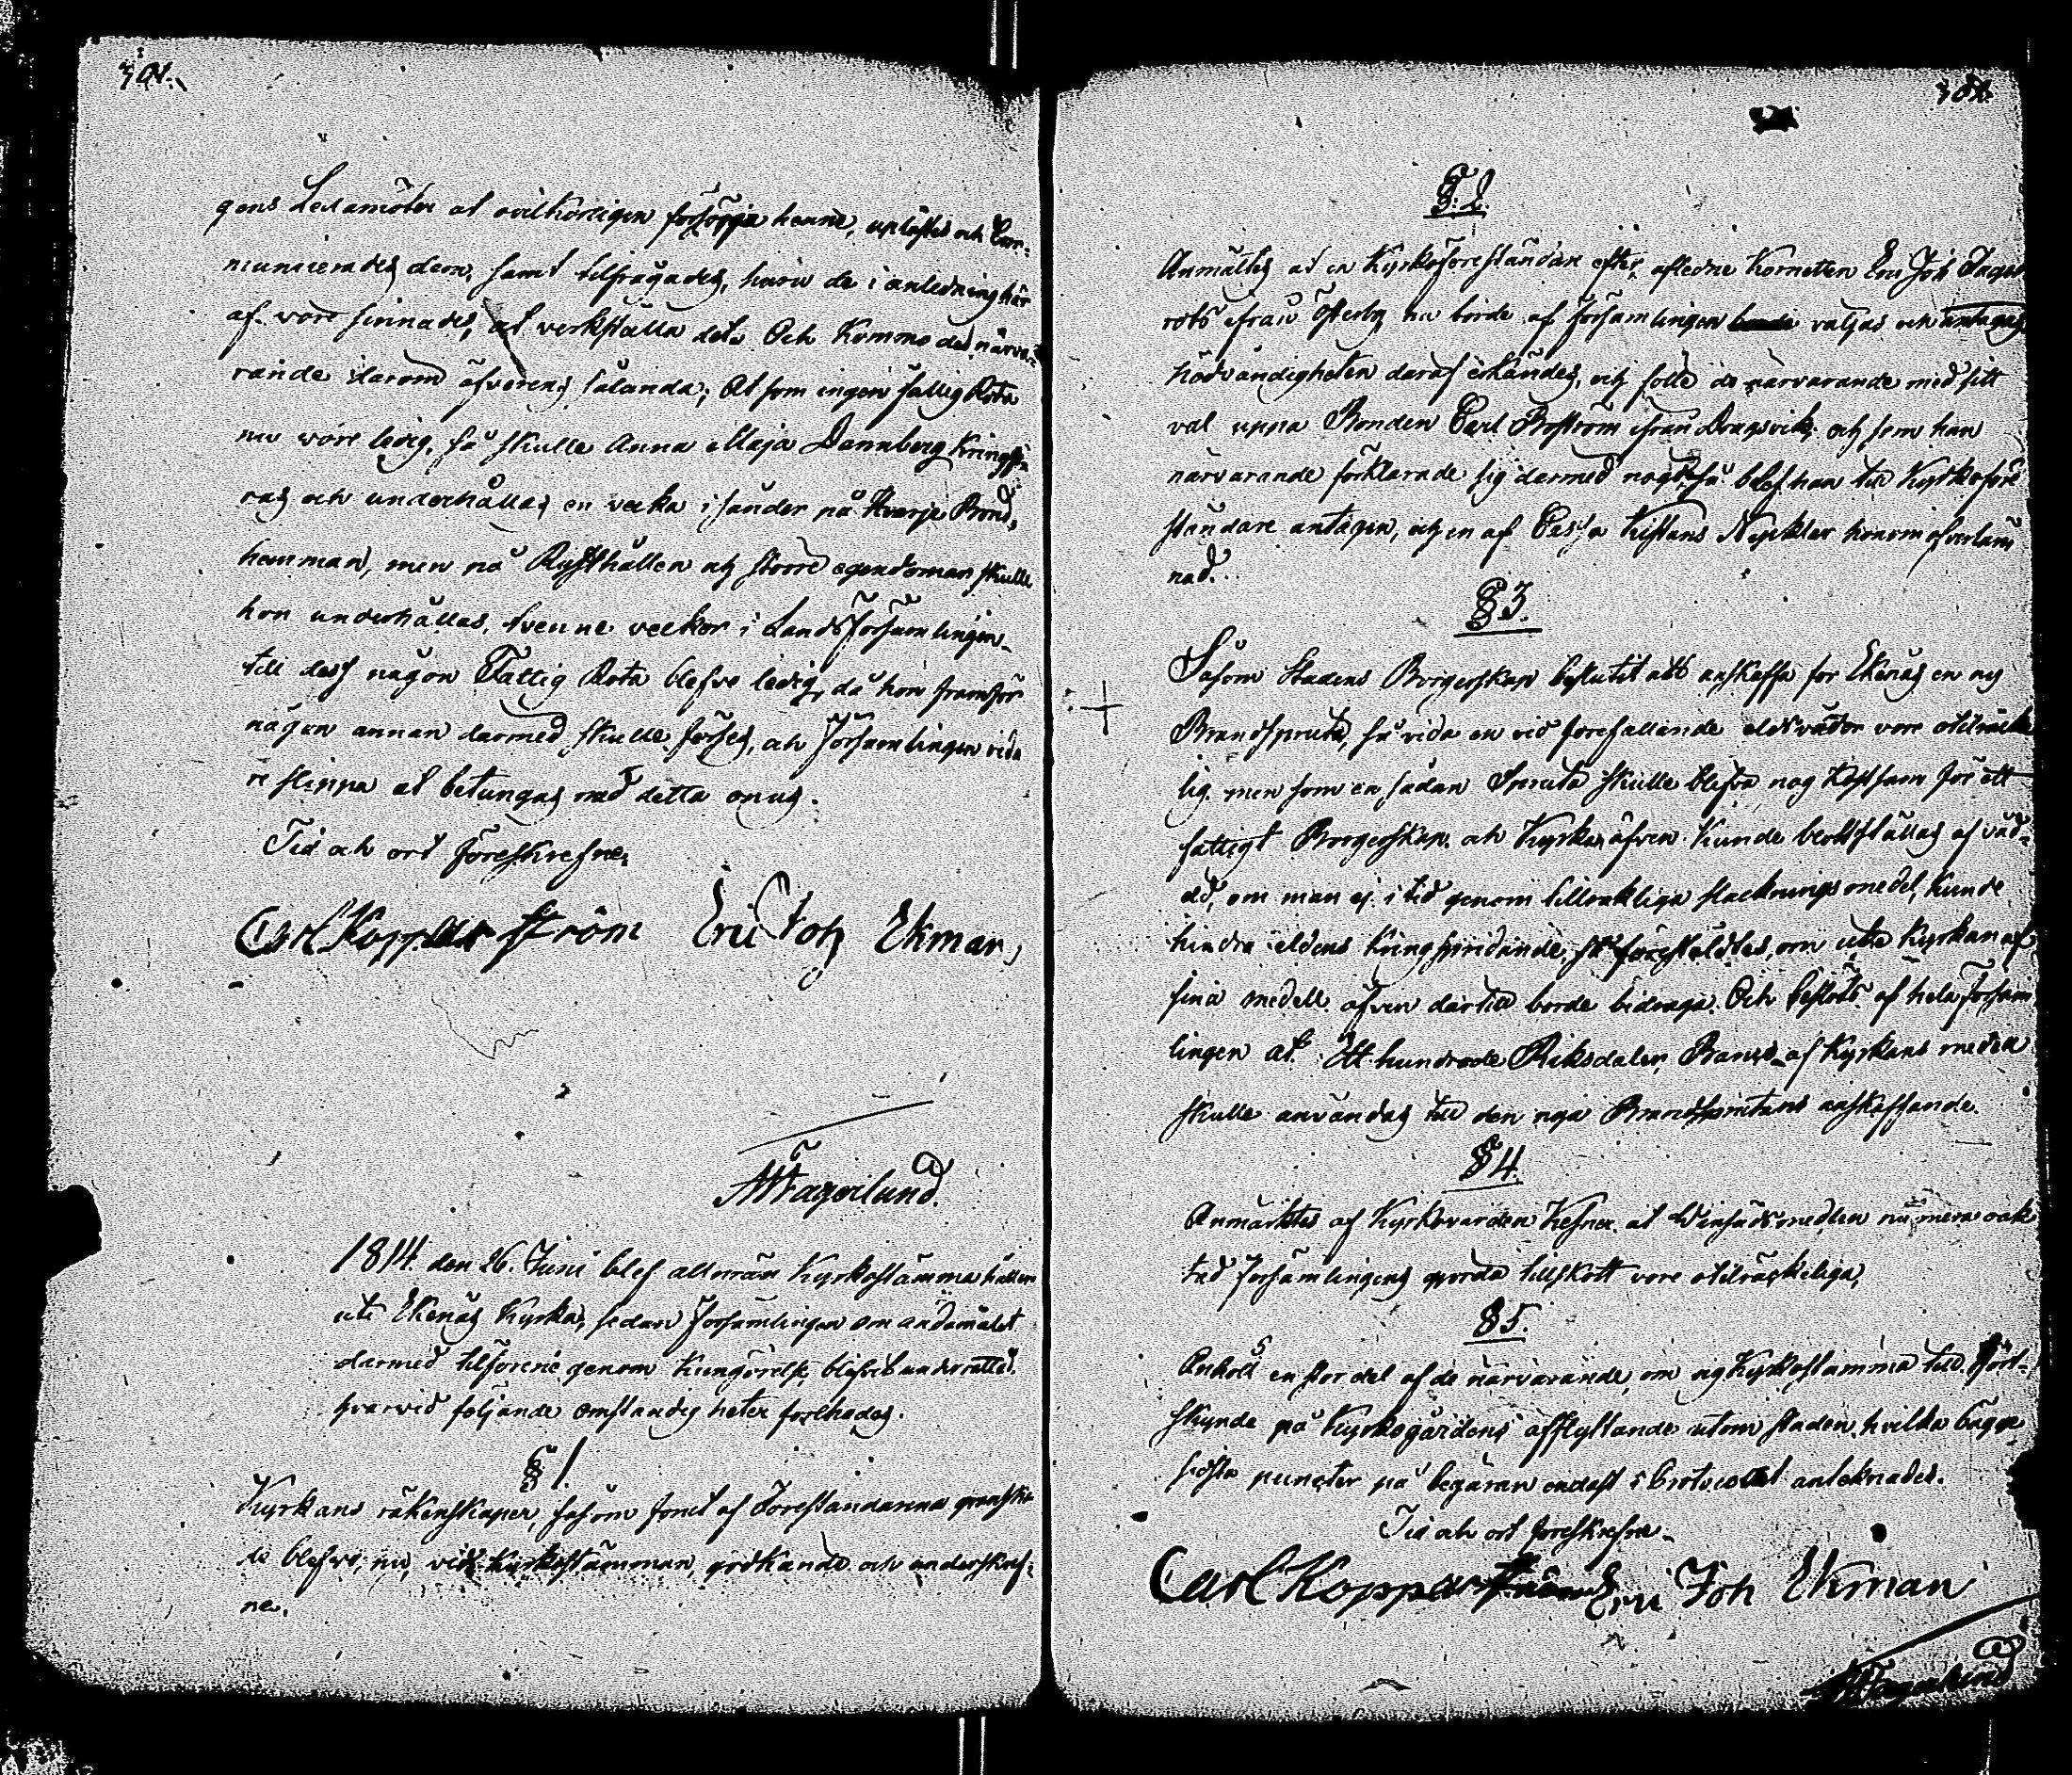 301.
gens Ledamöter at ovilkorligen försörja henne, uplästes och Com¬
municerades dem, samt tilfrågades, huru de i anledning här
af vore sinnade, at verkställa det. Och Kommo de närva¬
rande darom öfverens sålunda; At som ingen fattig Rota
nu vore ledig, så skulle Anna Maja Dannberg Kringfö¬
ras och underhållas en vecka i sänder på Hvarje Bond¬
hemman, men på Rusthållen och större egendomar skulle
hon underhållas, tvenne veckor i Landsförsamlingen
till dess någon Fattig Rota blefve ledig, då hon framför
någon annan darmed skulle förses, och församlingen vida
re slippa at betungas med detta onus.
Tid och ort föreskrefne.
Carl Kopparström Eric Joh Ekman
Fagerlund.
1814 den 26. Junii blef allmän Kyrkostämma hållen
uti Ekenäs Kyrka, sedan församlingen om ändamålet
darmed tilförene genom Kungörelse blifvit underrättad.
hvarvid följande omständigheter förehades.
§ 1.
Kyrkans räkenskaper, såsom förut af Föreståndarena granska
de blefvo nu, vid Kyrkostämman, godkände och underskref¬
ne.
302.
§. 2.
Anmältes at en Kyrkoföreståndare efter afledne Kornetten Eric Joh
ifrån Österby nu borde af församlingen väljas och antagas
Nödvändigheten däraf erkändes, och föllo de närvarande med sitt
val uppå Bonden Carl Boström ifrån Dragsvik, och som han
närvarande förklarade sig dermed nögd, så blef han til Kyrkoföre
ståndare antagen, och en af Cassa Kistans Nycklar honom öfverläm
nad.
§ 3.
Såsom Stadens Borgerskap beslutit att anskaffa för Ekenäs en ny
Brandspruta, så vida en vid förefallande eldsvådor vore otilräcke
lig. men som en sådan Spruta skulle blifva nog Kostsam för ett
fattigt Borgerskap. och Kyrkan äfven Kunde blottställas af våd¬
eld, om man ej i tid genom tillräckliga släcknings medel, Kunde
hindra eldens kringspridande, så föreställdtes, om icke Kyrkan af
sina medell äfven därtill borde bidraga. Och beslöts af hela Försam
lingen at Ett hundrade Riksdaler Banco af Kyrkans medell
skulle användas till den nya Brandsprutans anskaffande.
§ 4.
Anmärktes af Kyrkovärden Hefner at Vinsädsmedlen nu mera oak
tad församlingens gjorda tillskott vore otilräckeliga,
§ 5.
Anhöll en stor del af de närvarande, om ny Kyrkostämma till
skynde på Kyrkogårdens afflyttande utom staden, hvilka bägge
sidsta puncter på begäran endast i Protocollet antecknades.
Tid och ort föreskrefne.
Carl Kopparström Eric Joh Ekman
Fagerlund